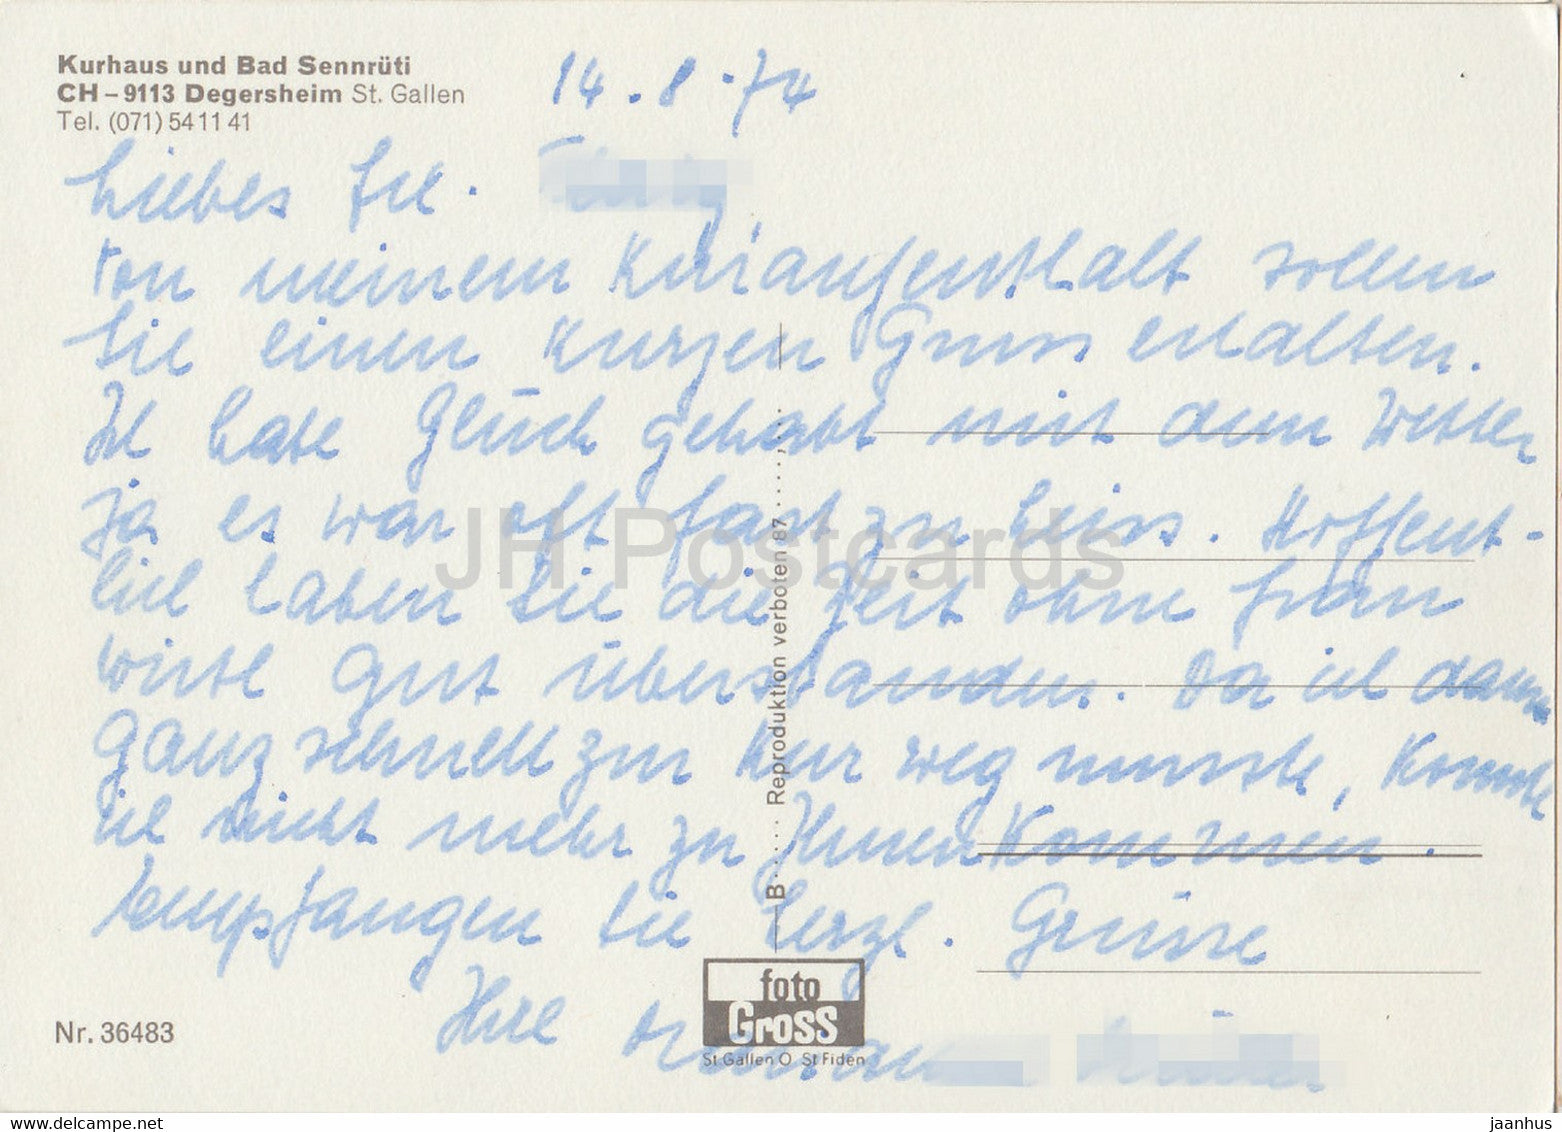 Kurhaus und Bad Sennrüti
CH – 9113 Degersheim St. Gallen
Tel. (071) 54 11 41
14. 8. 74
Liebes Frl.
Von meinem Kuraufenthalt sollen
Sie einen kurzen Gruss erhalten.
Ich hatte Glück gehabt mit dem Wetter
ja es war oft fast zu heiss. Hoffent-
lich haben Sie die Zeit ohne Frau
gut überstanden. Da ich dann
ganz schnell zur Kur weg musste, konnte
ich nicht mehr zu Ihnen kommen.
Empfangen Sie herzl. Grüsse
Ihre
B Reproduktion verboten 87
JH Postcards
foto
Gross
St Gallen O St Fiden
Nr. 36483
www.delcampe.net
jaanhus